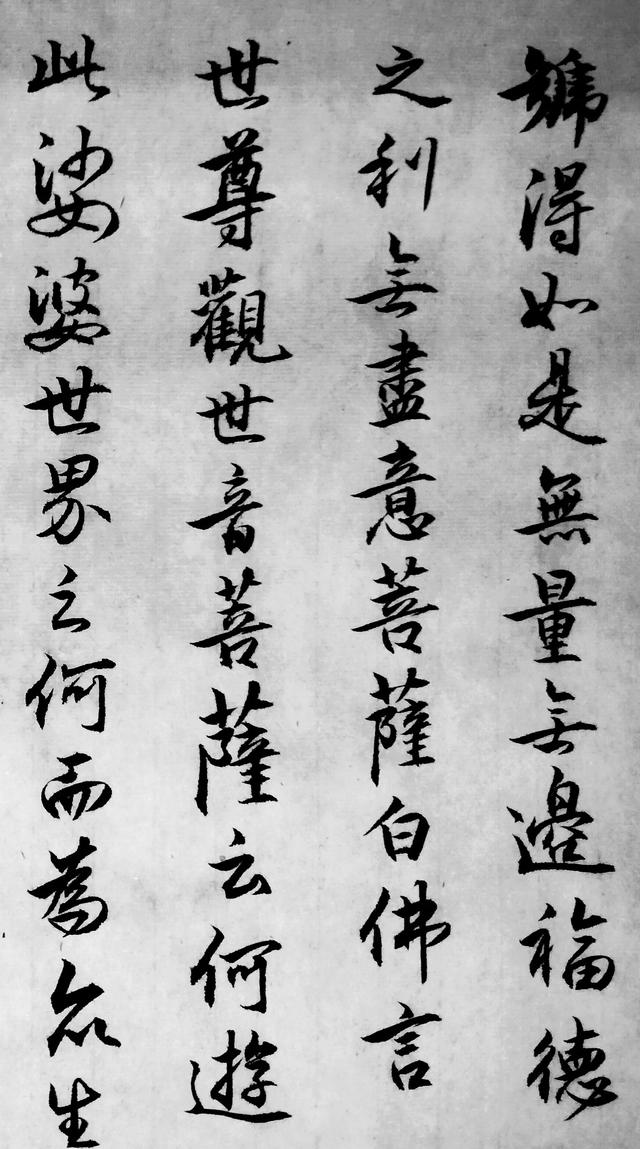 號得如是無量无邊福德
之利无盡意菩薩白佛言
世尊觀世音菩薩云何遊
此娑婆世界云何而為眾生